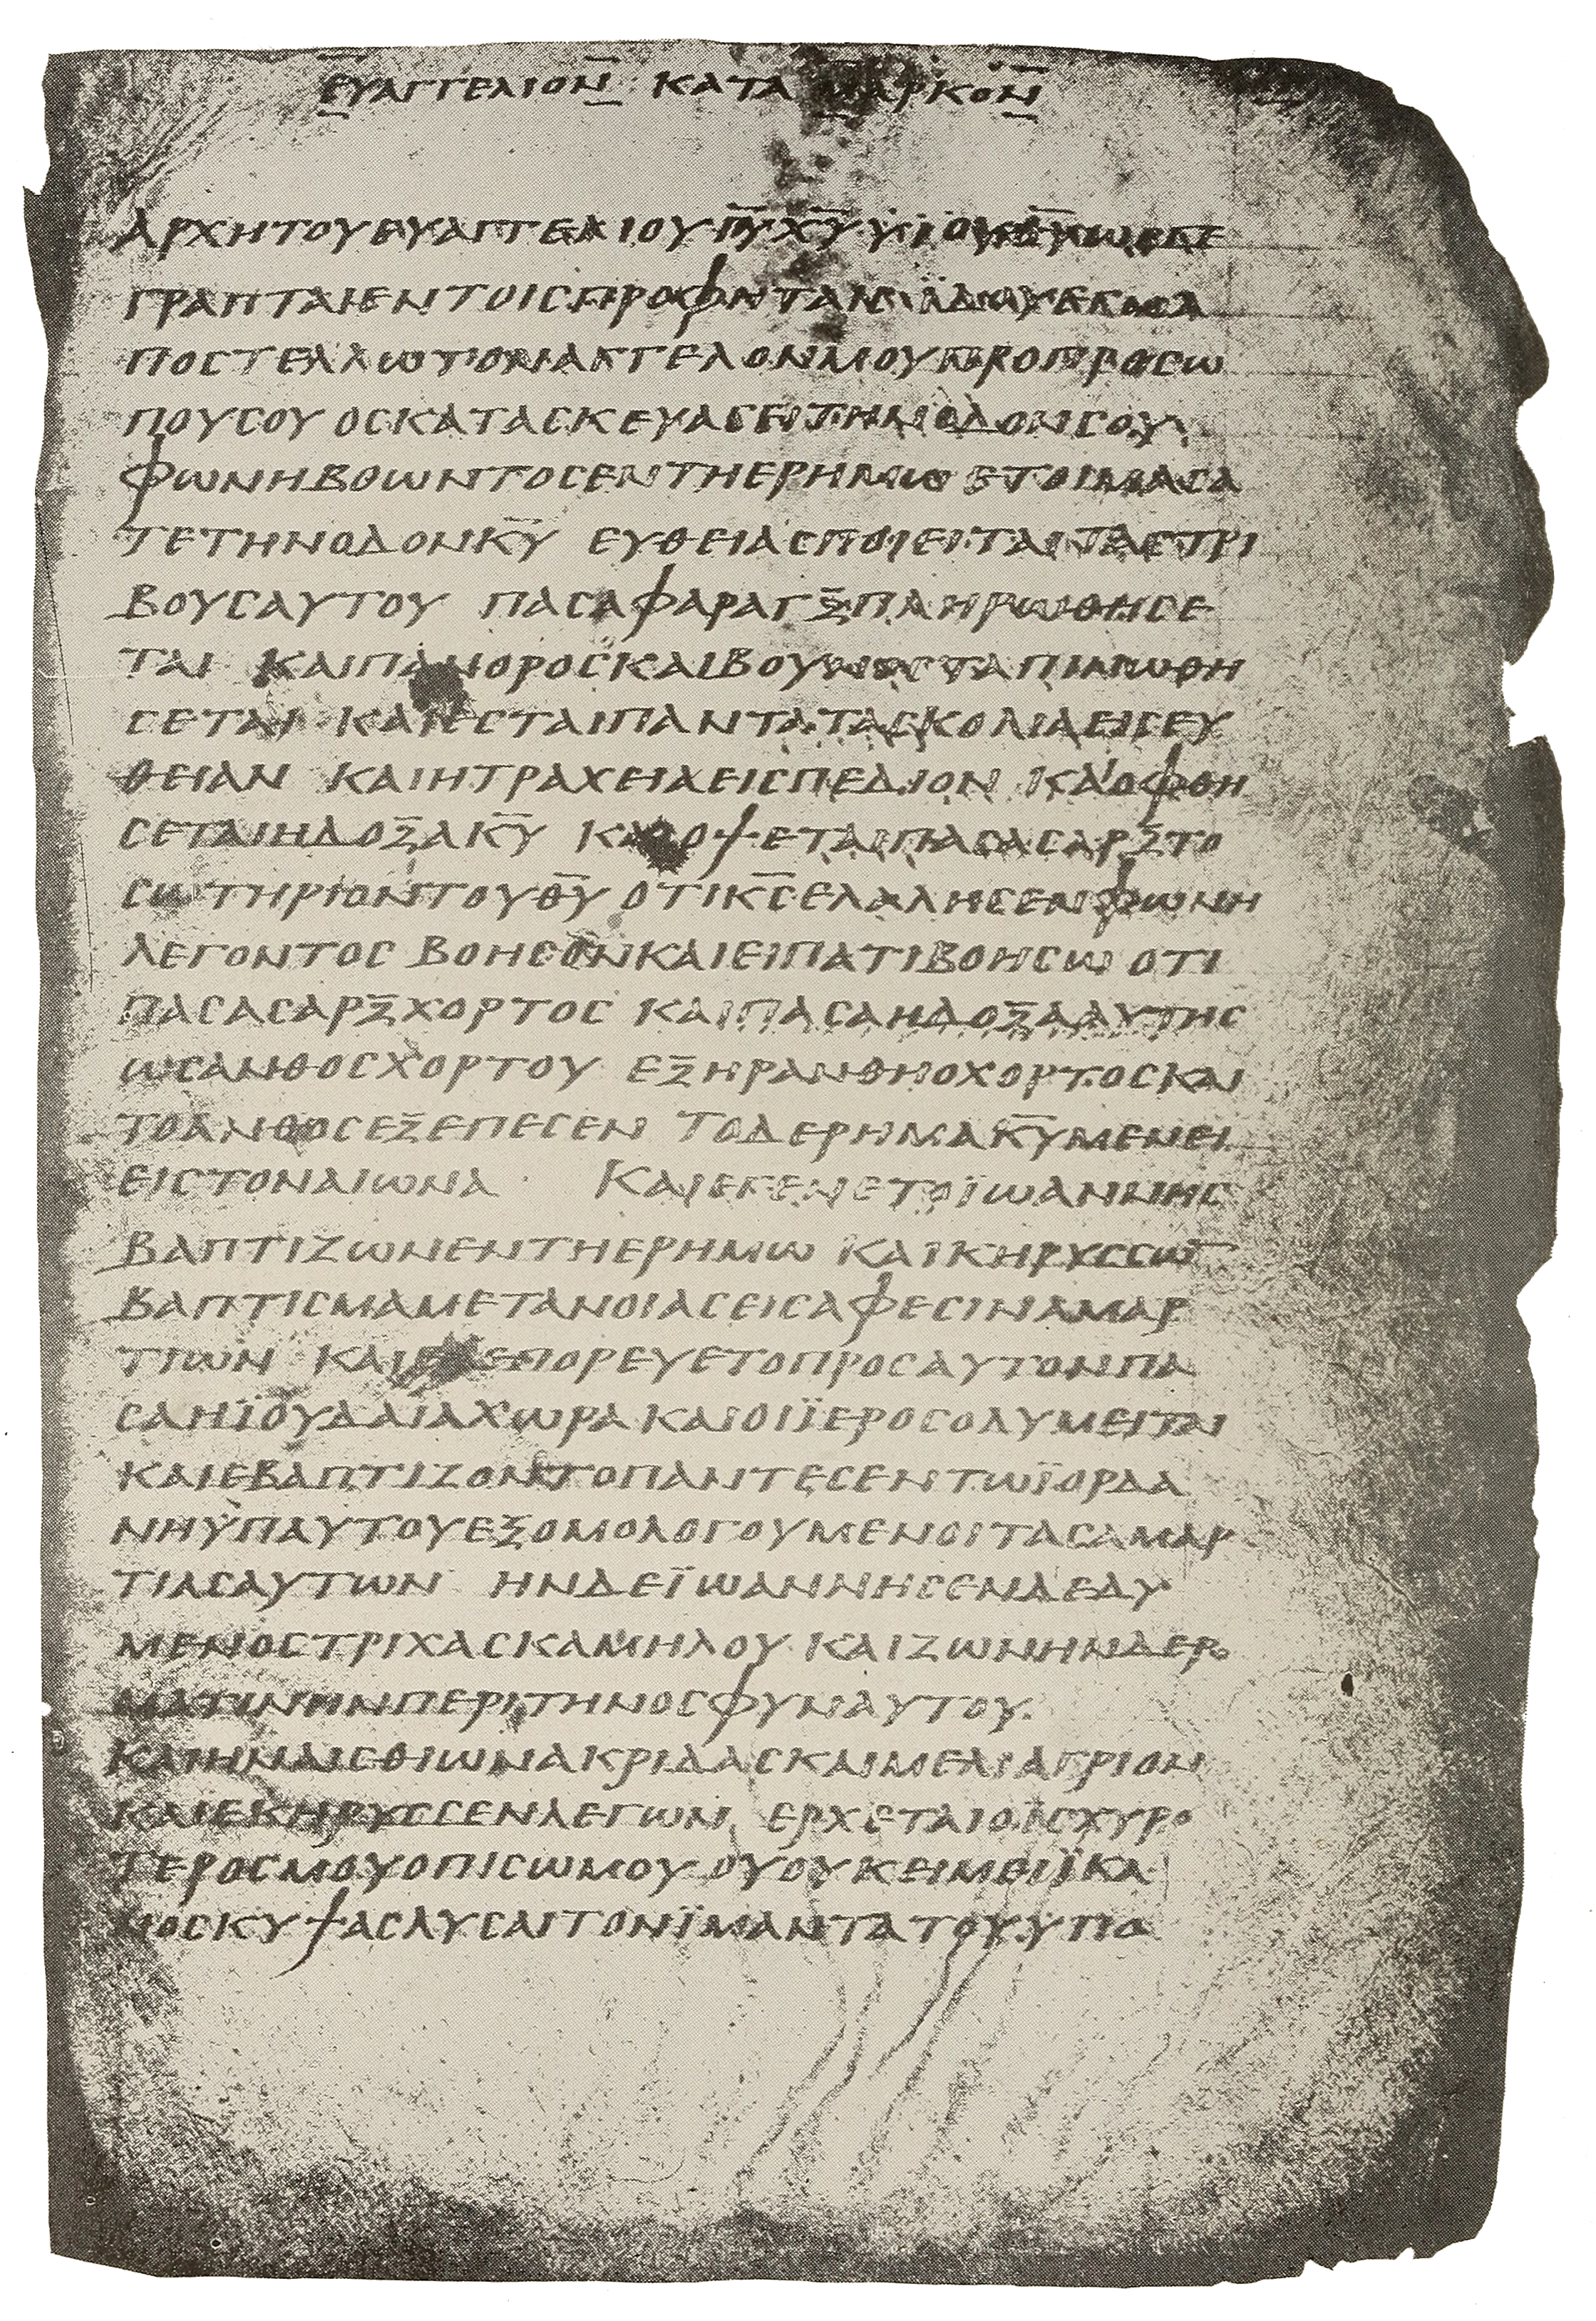 ΕΥΑΓΓΕΛΙΟΝ ΚΑΤΑ ΜΑΡΚΟΝ
ΑΡΧΗΤΟΥΕΥΑΓΓΕΛΙΟΥΙ̅Υ̅Χ̅Υ̅ΥΪΟΥΘ̅Υ̅ΩϹΓΕ
ΓΡΑΠΤΑΙΕΝΤΟΙϹΠΡΟΦΗΤΑΙϹΪΔΟΥΕΓΩΑ
ΠΟϹΤΕΛΛΩΤΟΝΑΓΓΕΛΟΝΜΟΥΠΡΟΠΡΟϹΩ
ΠΟΥϹΟΥ ΟϹΚΑΤΑϹΚΕΥΑϹΕΙΤΗΝΟΔΟΝϹΟΥ
ΦΩΝΗΒΟΩΝΤΟϹΕΝΤΗΕΡΗΜΩ ΕΤΟΙΜΑϹΑ
ΤΕΤΗΝΟΔΟΝΚ̅Υ̅ ΕΥΘΕΙΑϹΠΟΙΕΙΤΑΙΤΑϹΤΡΙ
ΒΟΥϹΑΥΤΟΥ ΠΑϹΑΦΑΡΑΓΞΠΛΗΡΩΘΗϹΕ
ΤΑΙ ΚΑΙΠΑΝΟΡΟϹΚΑΙΒΟΥΝΟϹΤΑΠΙΝΩΘΗ
ϹΕΤΑΙ ΚΑΙΕϹΤΑΙΠΑΝΤΑΤΑϹΚΟΛΙΑΕΙϹΕΥ
ΘΕΙΑΝ ΚΑΙΗΤΡΑΧΕΙΑΕΙϹΠΕΔΙΟΝ ΚΑΙΟΦΘΗ
ϹΕΤΑΙΗΔΟΞΑΚ̅Υ̅ ΚΑΙΟΨΕΤΑΙΠΑϹΑϹΑΡΞΤΟ
ϹΩΤΗΡΙΟΝΤΟΥΘ̅Υ̅ ΟΤΙΚ̅Ϲ̅ΕΛΑΛΗϹΕΝΦΩΝΗ
ΛΕΓΟΝΤΟϹ ΒΟΗϹΟΝΚΑΙΕΙΠΑΤΙΒΟΗϹΩ ΟΤΙ
ΠΑϹΑϹΑΡΞΧΟΡΤΟϹ ΚΑΙΠΑϹΑΗΔΟΞΑΑΥΤΗϹ
ΩϹΑΝΘΟϹΧΟΡΤΟΥ ΕΞΗΡΑΝΘΗΟΧΟΡΤΟϹΚΑΙ
ΤΟΑΝΘΟϹΕΞΕΠΕϹΕΝ ΤΟΔΕΡΗΜΑΚ̅Υ̅ΜΕΝΕΙ
ΕΙϹΤΟΝΑΙΩΝΑ· ΚΑΙΕΓΕΝΕΤΟΪΩΑΝΝΗϹ
ΒΑΠΤΙΖΩΝΕΝΤΗΕΡΗΜΩ ΚΑΙΚΗΡΥϹϹΩ̅
ΒΑΠΤΙϹΜΑΜΕΤΑΝΟΙΑϹΕΙϹΑΦΕϹΙΝΑΜΑΡ
ΤΙΩΝ ΚΑΙΕΞΕΠΟΡΕΥΕΤΟΠΡΟϹΑΥΤΟΝΠΑ
ϹΑΗΪΟΥΔΑΙΑΧΩΡΑΚΑΙΟΙΪΕΡΟϹΟΛΥΜΕΙΤΑΙ
ΚΑΙΕΒΑΠΤΙΖΟΝΤΟΠΑΝΤΕϹΕΝΤΩΪΟΡΔΑ
ΝΗΫΠΑΥΤΟΥΕΞΟΜΟΛΟΓΟΥΜΕΝΟΙΤΑϹΑΜΑΡ
ΤΙΑϹΑΥΤΩΝ ΗΝΔΕΪΩΑΝΝΗϹΕΝΔΕΔΥ
ΜΕΝΟϹΤΡΙΧΑϹΚΑΜΗΛΟΥ ΚΑΙΖΩΝΗΝΔΕΡ
ΜΑΤΙΝΗΝΠΕΡΙΤΗΝΟϹΦΥΝΑΥΤΟΥ·
ΚΑΙΗΝΑΙϹΘΙΩΝΑΚΡΙΔΑϹΚΑΙΜΕΛΙΑΓΡΙΟΝ
ΚΑΙΕΚΗΡΥϹϹΕΝΛΕΓΩΝ ΕΡΧΕΤΑΙΟΙϹΧΥΡΟ
ΤΕΡΟϹΜΟΥΟΠΙϹΩΜΟΥ ΟΥΟΥΚΕΙΜΕΙΪΚΑ
ΝΟϹΚΥΨΑϹΛΥϹΑΙΤΟΝΪΜΑΝΤΑΤΟΥΫΠΟ